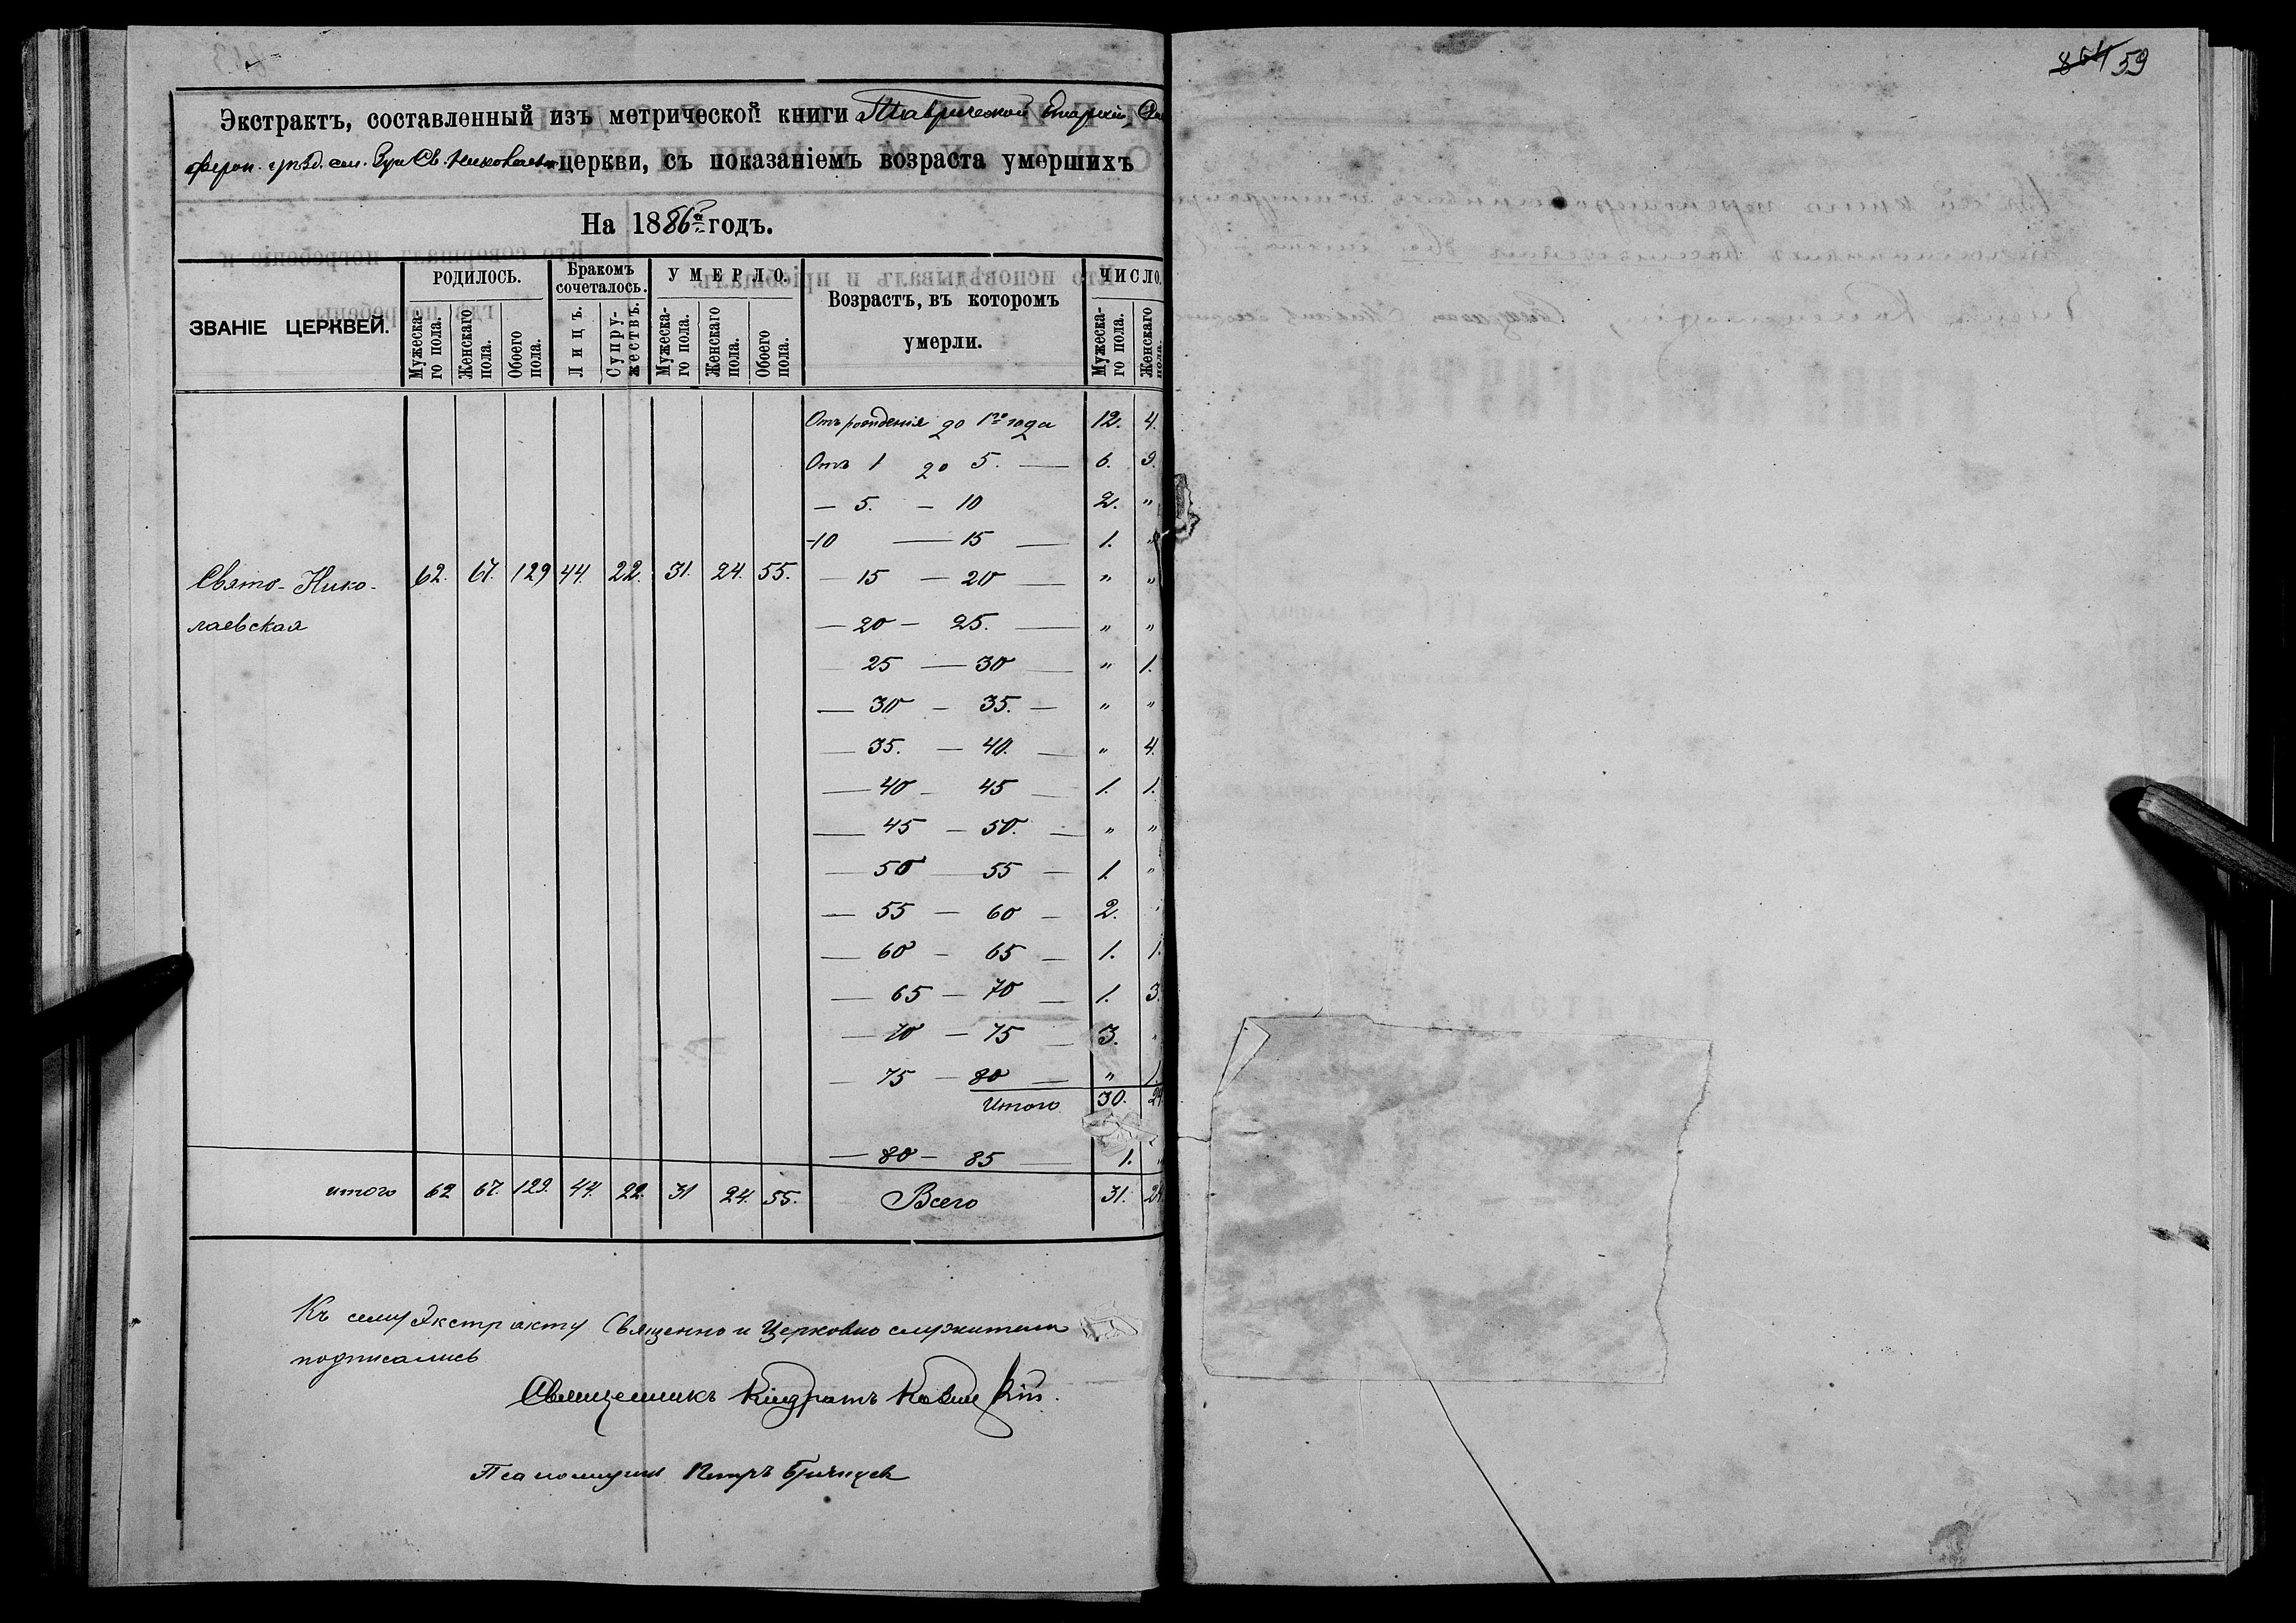 Экстрактъ, составленный изъ метрической книги Таврической Епархіи,
ферон. уѣзд. сел. Зуи Св. Николаевск. церкви, съ показаніемъ возраста умершихъ
На 1886й годъ.
ЗВАНІЕ ЦЕРКВЕЙ. РОДИЛОСЬ. Бракомъ сочеталось. УМЕРЛО. Возрастъ, въ которомъ умерли. ЧИСЛО.
Мужеска-го пола. Женскаго пола. Обоего пола. Лицъ. Супру-жествъ. Мужеска-го пола. Женскаго пола. Обоего пола. Мужеска-го пола. Женскаго пола.
Отъ рожденія до 1го года 12. 4.
Отъ 1 до 5. — 6. 9.
— 5. — 10 2. "
-10 — 15 — 1. "
Свято-Нико- 62. 67. 129 44. 22. 31. 24. 55. — 15 — 20 — " "
лаевская — 20 — 25. — " "
— 25 — 30 — " 1.
— 30 — 35. — " "
— 35. — 40. — " 4.
— 40 — 45 — 1. 1.
— 45 — 50. — " "
— 50 — 55 — 1. "
— 55 — 60 — 2. "
— 60 — 65 — 1. 1.
— 65 — 70 — 1. 3.
— 70 — 75 — 3. "
— 75 — 80 — " 1
Итого 30. 24.
— 80 — 85 — 1. "
итого 62 67. 129. 44. 22. 31 24. 55. Всего 31. 24.
Къ сему Экстракту Священно и Церковно служители
подписались
Священникъ Кіндратъ
Псаломщикъ Петръ
59